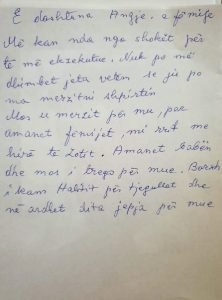 E dashtuna Angje. e fëmije
Më kan nda nga shokët për
të më ekzekutue. Nuk po më
dhimbet jeta vetem se ju po
ma merzitni shpirtin
Mos u merzit për mu, por
amanet fëmijët, më rrit me
hirë të Zotit. Amanet babën
dhe mos i trego për mue. Borxh
i kam Halilit për tjegullat dhe
në ardhet dita jepja për mue